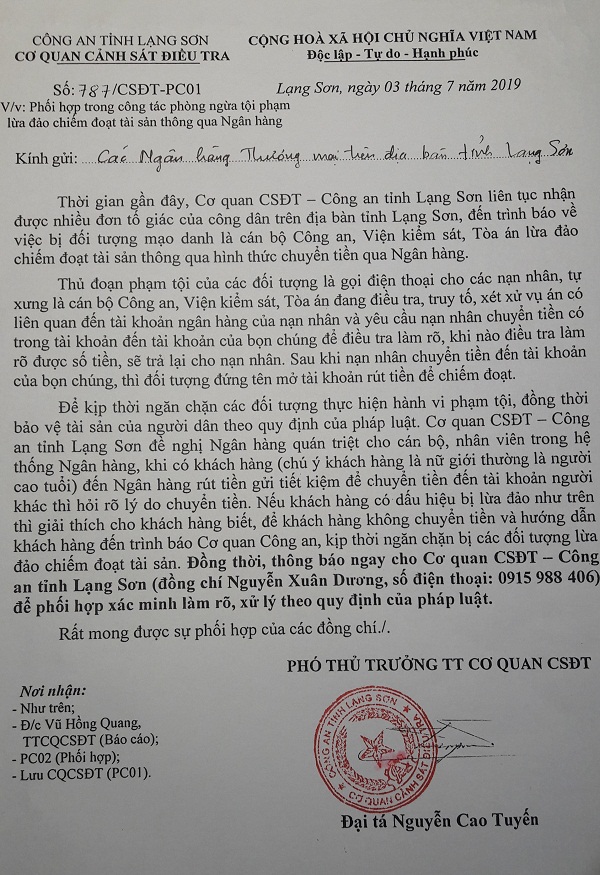 CÔNG AN TỈNH LẠNG SƠN
CƠ QUAN CẢNH SÁT ĐIỀU TRA
CỘNG HOÀ XÃ HỘI CHỦ NGHĨA VIỆT NAM
Độc lập - Tự do - Hạnh phúc
Số: 787/CSĐT-PC01
Lạng Sơn, ngày 03 tháng 7 năm 2019
V/v: Phối hợp trong công tác phòng ngừa tội phạm
lừa đảo chiếm đoạt tài sản thông qua Ngân hàng
Kính gửi: Các Ngân hàng Thương mại trên địa bàn tỉnh Lạng Sơn
Thời gian gần đây, Cơ quan CSĐT – Công an tỉnh Lạng Sơn liên tục nhận
được nhiều đơn tố giác của công dân trên địa bàn tỉnh Lạng Sơn, đến trình báo về
việc bị đối tượng mạo danh là cán bộ Công an, Viện kiểm sát, Tòa án lừa đảo
chiếm đoạt tài sản thông qua hình thức chuyển tiền qua Ngân hàng.
Thủ đoạn phạm tội của các đối tượng là gọi điện thoại cho các nạn nhân, tự
xưng là cán bộ Công an, Viện kiểm sát, Tòa án đang điều tra, truy tố, xét xử vụ án có
liên quan đến tài khoản ngân hàng của nạn nhân và yêu cầu nạn nhân chuyển tiền có
trong tài khoản đến tài khoản của bọn chúng để điều tra làm rõ, khi nào điều tra làm
rõ được số tiền, sẽ trả lại cho nạn nhân. Sau khi nạn nhân chuyển tiền đến tài khoản
của bọn chúng, thì đối tượng đứng tên mở tài khoản rút tiền để chiếm đoạt.
Để kịp thời ngăn chặn các đối tượng thực hiện hành vi phạm tội, đồng thời
bảo vệ tài sản của người dân theo quy định của pháp luật. Cơ quan CSĐT – Công
an tỉnh Lạng Sơn đề nghị Ngân hàng quán triệt cho cán bộ, nhân viên trong hệ
thống Ngân hàng, khi có khách hàng (chú ý khách hàng là nữ giới thường là người
cao tuổi) đến Ngân hàng rút tiền gửi tiết kiệm để chuyển tiền đến tài khoản người
khác thì hỏi rõ lý do chuyển tiền. Nếu khách hàng có dấu hiệu bị lừa đảo như trên
thì giải thích cho khách hàng biết, để khách hàng không chuyển tiền và hướng dẫn
khách hàng đến trình báo Cơ quan Công an, kịp thời ngăn chặn bị các đối tượng lừa
đảo chiếm đoạt tài sản. Đồng thời, thông báo ngay cho Cơ quan CSĐT – Công
an tỉnh Lạng Sơn (đồng chí Nguyễn Xuân Dương, số điện thoại: 0915 988 406)
để phối hợp xác minh làm rõ, xử lý theo quy định của pháp luật.
Rất mong được sự phối hợp của các đồng chí./.
PHÓ THỦ TRƯỞNG TT CƠ QUAN CSĐT
Nơi nhận:
- Như trên;
- Đ/c Vũ Hồng Quang,
TTCQCSĐT (Báo cáo);
- PC02 (Phối hợp);
- Lưu CQCSĐT (PC01).
CÔNG AN TỈNH LẠNG SƠN
CƠ QUAN CẢNH SÁT ĐIỀU TRA
Đại tá Nguyễn Cao Tuyến